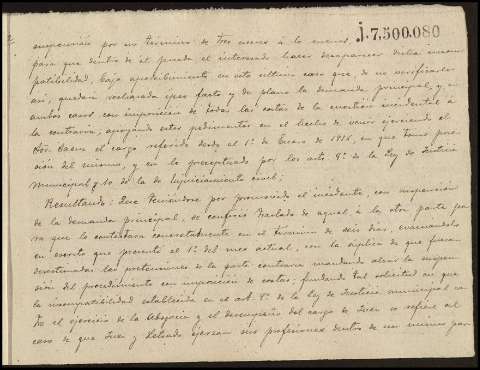 J.7,500,080
suspensión por un término de tres meses á lo menos
para que dentro de él pueda el interesado hacer desaparecer dicha incom-
patibilidad, bajo apercibimiento en este último caso que, de no verificarlo
así, quedará rechazada ipso facto y de plano la demanda principal, y, en
ambos casos con imposición de todas las costas de la cuestión incidental á
la contraria, apoyando estos pedimentos en el hecho de venir ejerciendo el
Sor. Saenz el cargo referido desde el 1º de Enero de 1916, en que tomó pose-
sión del mismo, y en lo preceptuado por los arts. 9º de la Ley de Justicia
Municipal y 10 de la de Enjuiciamiento civil;
Resultando: Que teniéndose por promovido el incidente, con suspensión
de la demanda principal, se confirió traslado de aquel á la otra parte pa-
ra que lo contestara concretamente en el término de seis dias, evacuándolo
en escrito que presentó el 1º del mes actual, con la súplica de que fueran
desestimadas las pretensiones de la parte contraria mandando alzar la suspen-
sión del procedimiento con imposición de costas; fundando tal solicitud en que
la incompatibilidad establecida en el art. 9º de la Ley de Justicia municipal en-
tre el ejercicio de la Abogacía y el desempeño del cargo de Juez se refiere al
caso de que Juez y Letrado ejerzan sus profesiones dentro de un mismo par-